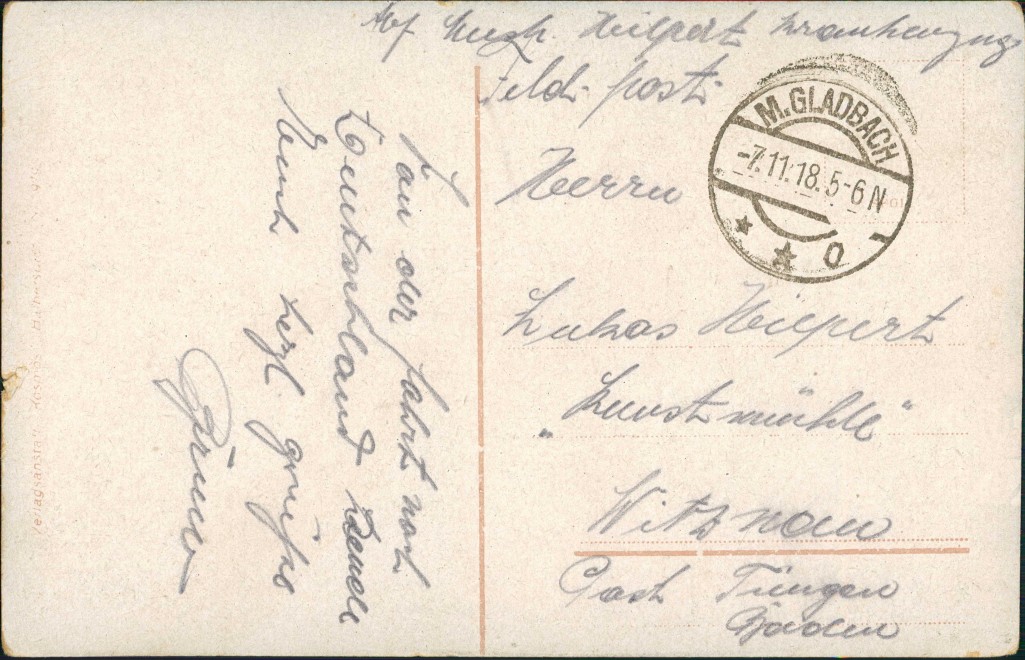 Abs. Musk. Heilpert Krankenzug
Feld-post
M.GLADBACH
-7.11.18.5-6N
* * o
Herrn
Lukas Heilpert
„Kunstmühle"
Witznau
Post Tiengen
Baden
der fahrt nach
Deutschland sende
Euch herzl. grüße
Verlagsanstalt